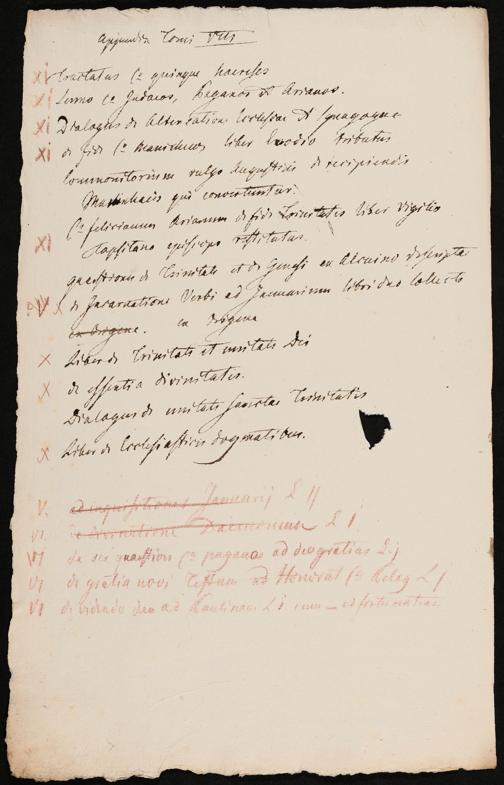 Appendix Tomi VIII
XI Tractatus Ca quinque haereses
XI Sermo ca Judaeos, Paganos et Arianos.
XI Dialogus de Altercatione Ecclesiae et Synagogae
XI de fide Ca Manichaeos liber Evodio tributus
Commonitorium vulgo Augustini de recipiendis
Manichaeis qui convertuntur.
Ca felicianum Arianum de fide Trinitatis liber Vigilio
XI Tapsitano episcopo restitutus.
quaestiones de Trinitate et de Genesi ex Alcuino descriptae
X de Incarnatione Verbi ad Januarium libri duo collecti
ex Origene. ex Origene
X Liber de Trinitate et unitate Dei
X de essentia divinitatis.
Dialogus de unitate Sanctae Trinitatis
X Liber de Ecclesiasticis dogmatibus.
V. ad inquisitiones Januarij L ij
VI de divinatione Daemonum L i
VI de sex quaestion ca paganos ad deogratias L j
VI de gratia novi Testum ad Honorat Ca Pelag L j
VI de videndo deo ad Paulinam L i cum ad fortunatian.